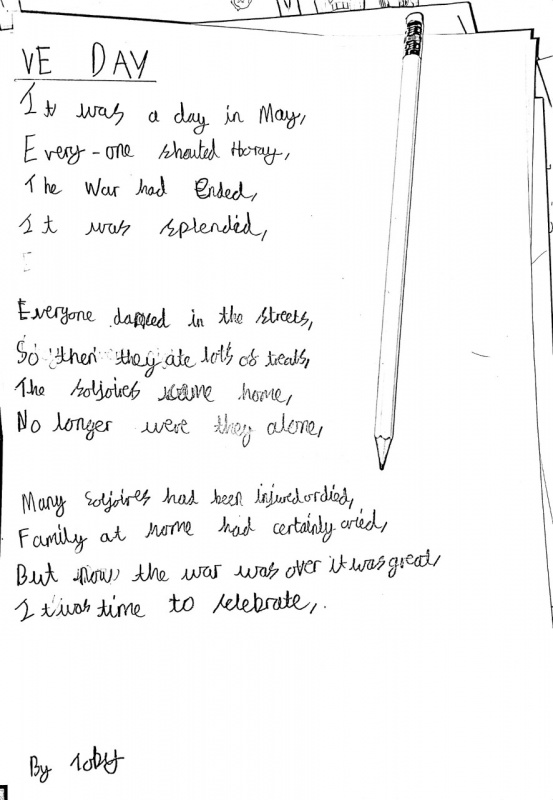 VE DAY
It was a day in May,
Every-one shouted Horay,
The War had Ended,
It was splended,
Everyone danced in the streets,
So then they ate lots of treats,
The soljoires came home,
No longer were they alone,
Many soljoires had been injured or died,
Family at home had certainly cried,
But now the war was over it was great,
It was time to selebrate,.
By Toby